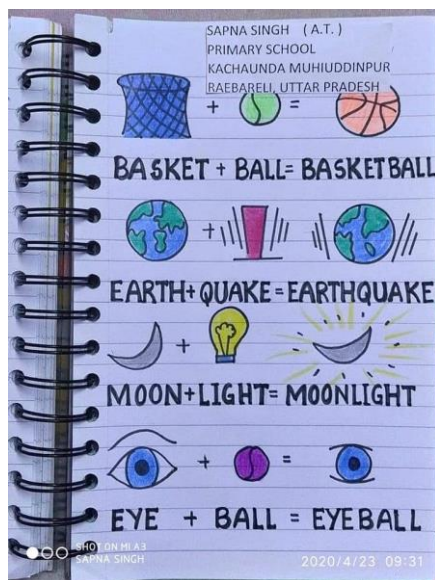 SAPNA SINGH (A.T.)
PRIMARY SCHOOL
KACHAUNDA MUHIUDDINPUR
RAEBARELI, UTTAR PRADESH
+ =
BASKET + BALL= BASKETBALL
+
EARTH+QUAKE=EARTHQUAKE
+
MOON+LIGHT= MOONLIGHT
+ =
EYE + BALL = EYEBALL
SHOT ON MI A3
SAPNA SINGH
2020/4/23 09:31